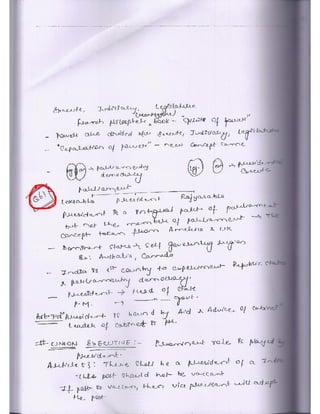 Execute, Judiciary, Legislature
(Montesquieu)
french philosopher, book - "Spirit of power"
- Power are divided b/w Execute, Judiciary, Legislature
- "Separation of power" - new concept came
- → parliamentary democracy → presidential
Parliament
Loksabha president Rajyasabha
President is a integral part of parliament
but not the member of parliament → The
concept taken from America & UK
- Dominant state → Self governing region
Ex: Australia, Cannada
- India is 1st country to experiment Republic state
& parliamentary democracy.
- President → Head of state
P.M. → — " — Govt.
Art-74 President is bound by Aid & Advice of cabinet
Leader of cabinet is PM.
# UNION EXECUTIVE :- Prominent role is played by
President.
Article 52: There shall be a president of a India
-this post should not be vaccant
If post is vaccant, then vice president will adopt
the post